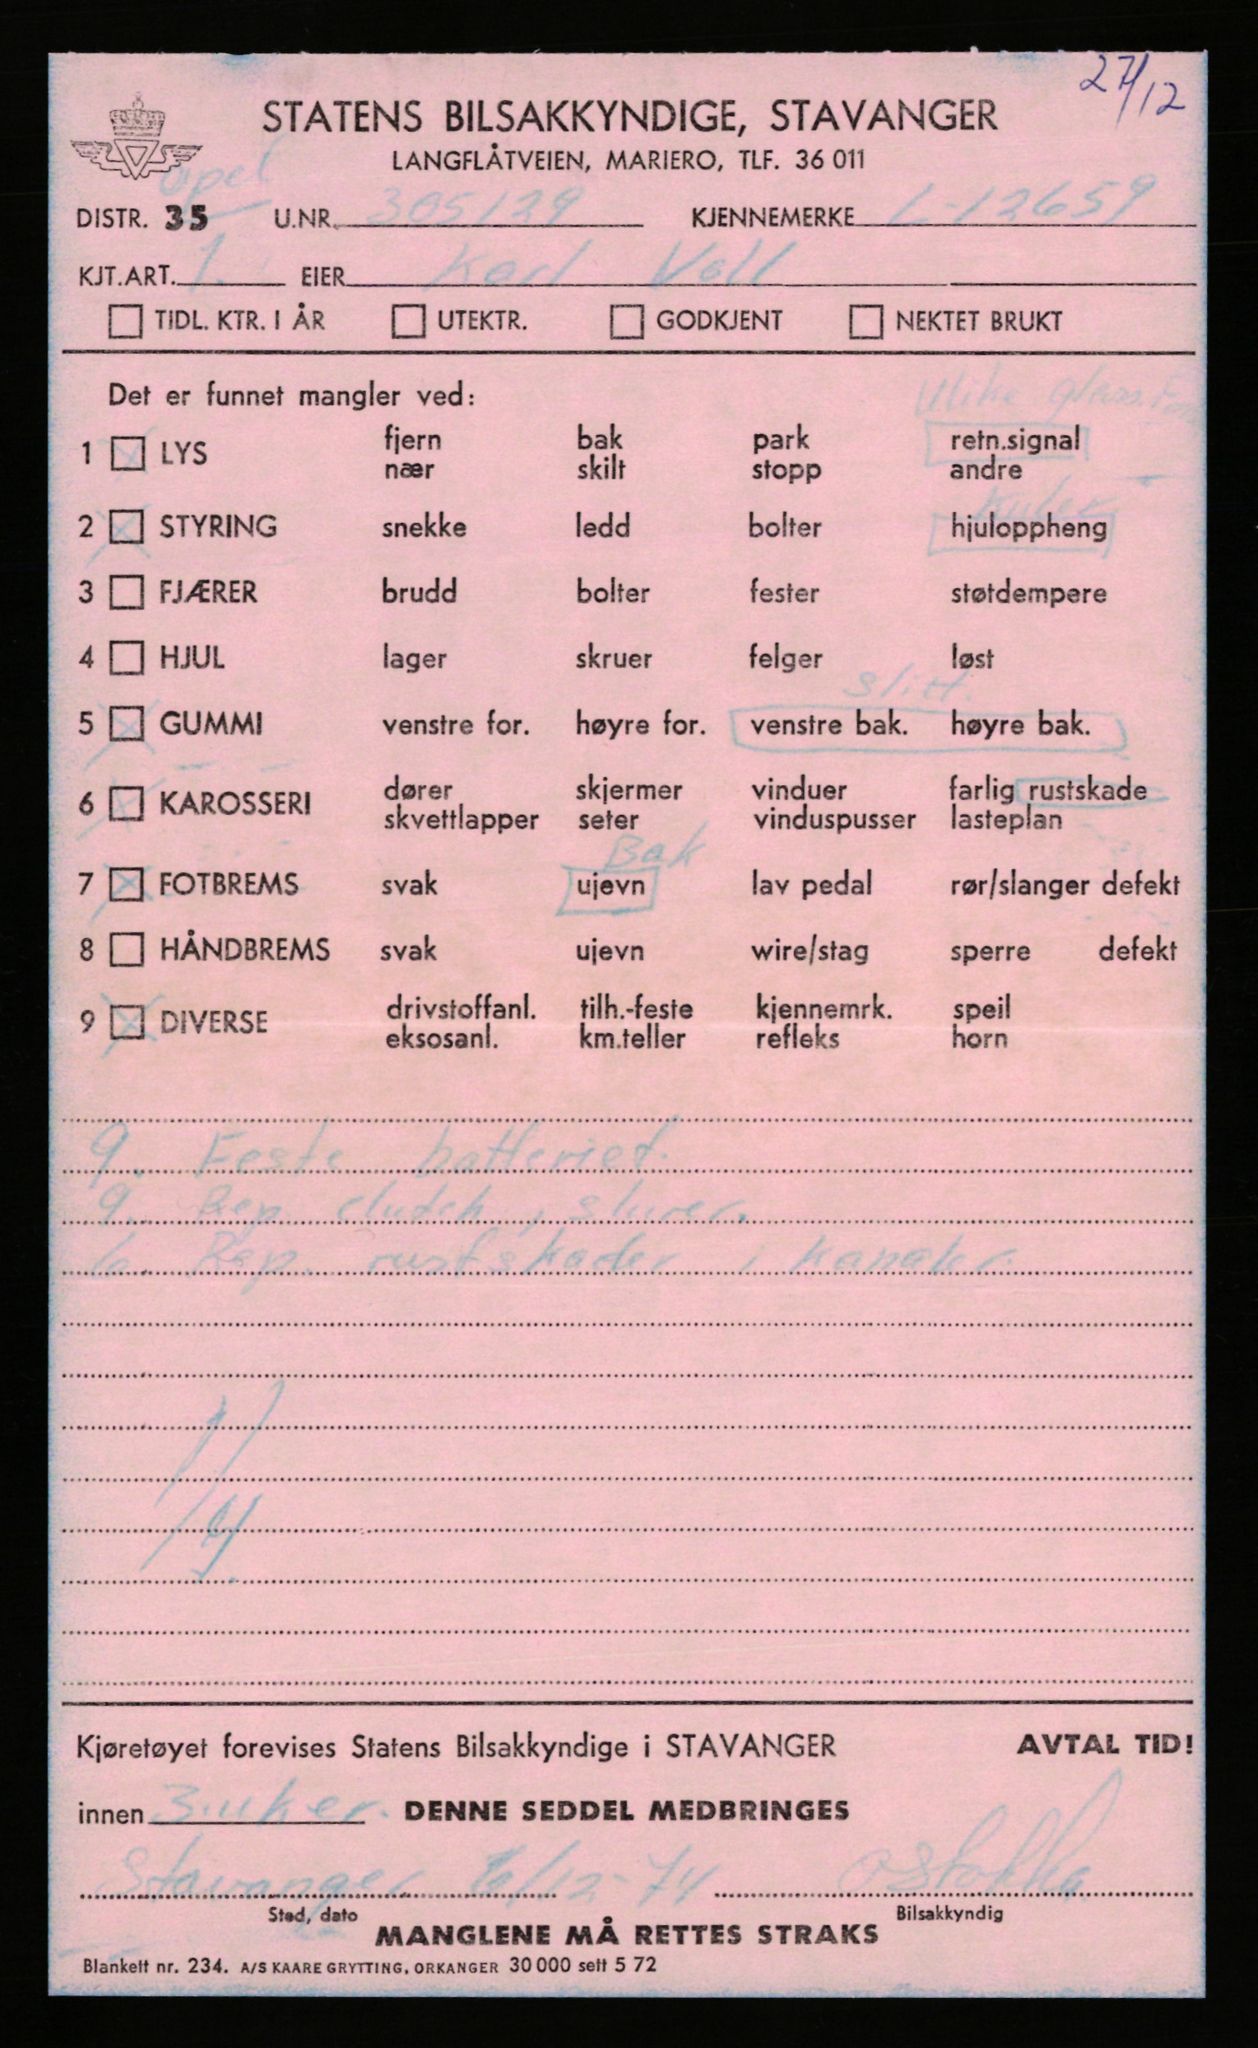 27/12
STATENS BILSAKKYNDIGE, STAVANGER
LANGFLÅTVEIEN, MARIERO, TLF. 36 011
Opel
DISTR. 35 U.NR. 305129 KJENNEMERKE L-12659
KJT.ART. 1. EIER Karl Voll
TIDL. KTR. I ÅR UTEKTR. GODKJENT NEKTET BRUKT
Det er funnet mangler ved: Ulike glass.
1 LYS fjern bak park retn.signal
nær skilt stopp andre
2 STYRING snekke ledd bolter hjuloppheng
3 FJÆRER brudd bolter fester støtdempere
4 HJUL lager skruer felger løst
slitt.
5 GUMMI venstre for. høyre for. venstre bak. høyre bak.
6 KAROSSERI dører skjermer vinduer farlig rustskade
skvettlapper seter vinduspusser lasteplan
Bak
7 FOTBREMS svak ujevn lav pedal rør/slanger defekt
8 HÅNDBREMS svak ujevn wire/stag sperre defekt
9 DIVERSE drivstoffanl. tilh.-feste kjennemrk. speil
eksosanl. km.teller refleks horn
9. Feste batteriet.
9. Rep. clutch, slurer.
6. Rep. rustskader i kanaler.
Kjøretøyet forevises Statens Bilsakkyndige i STAVANGER AVTAL TID!
innen 3 uker. DENNE SEDDEL MEDBRINGES
Stavanger 6/12-74 O Stokka
Sted, dato Bilsakkyndig
MANGLENE MÅ RETTES STRAKS
Blankett nr. 234. A/S KAARE GRYTTING, ORKANGER 30 000 sett 5 72